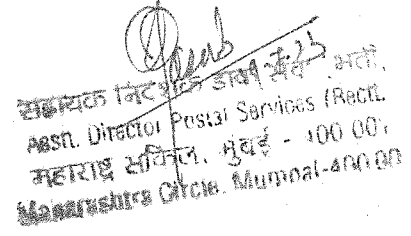 सहायक निदेशक डाक सेवा भर्ती,
Asstt. Director Postal Services (Rectt.
महाराष्ट्र सर्किल, मुंबई - 400 001
Maharashtra Circle, Mumbai-400 00